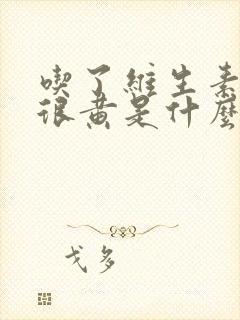 喫了維生素
很黄是什麼
戈多